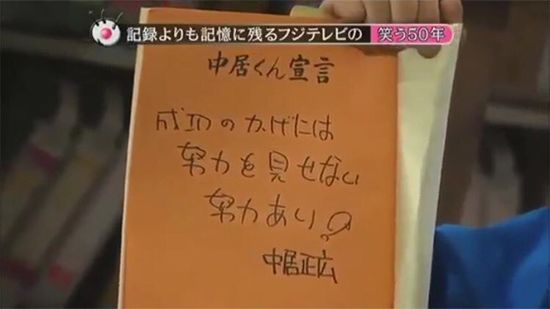 記録よりも記憶に残るフジテレビの 笑う50年
中居くん宣言
成功のかげには
努力を見せない
努力あり。
中居正広